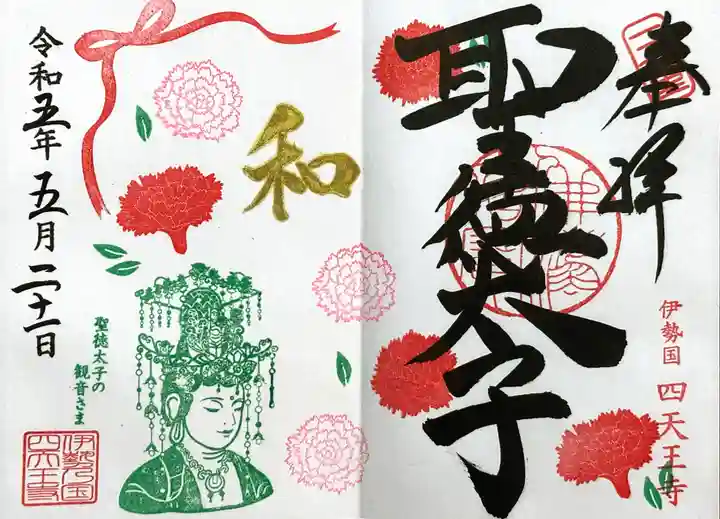 奉拝
聖徳太子
伊勢国 四天王寺
和
令和五年五月二十一日
聖徳太子の
観音さま
伊勢国
四天王寺